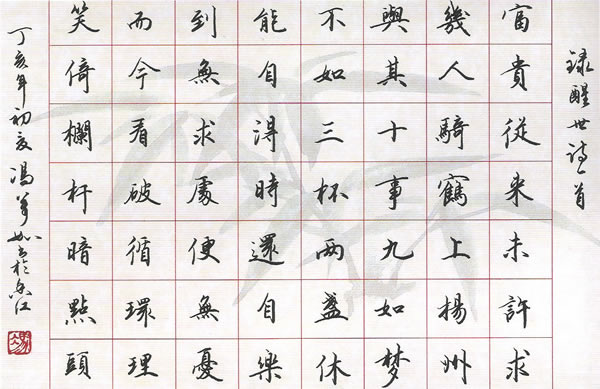 録醒世詩一首
富貴從来未許求
幾人騎鶴上揚州
與其十事九如梦
不如三杯两盏休
能自淂時還自樂
到無求處便無憂
而今看破循環理
笑倚欄杆暗點頭
丁亥年初夏馮草如书於东江